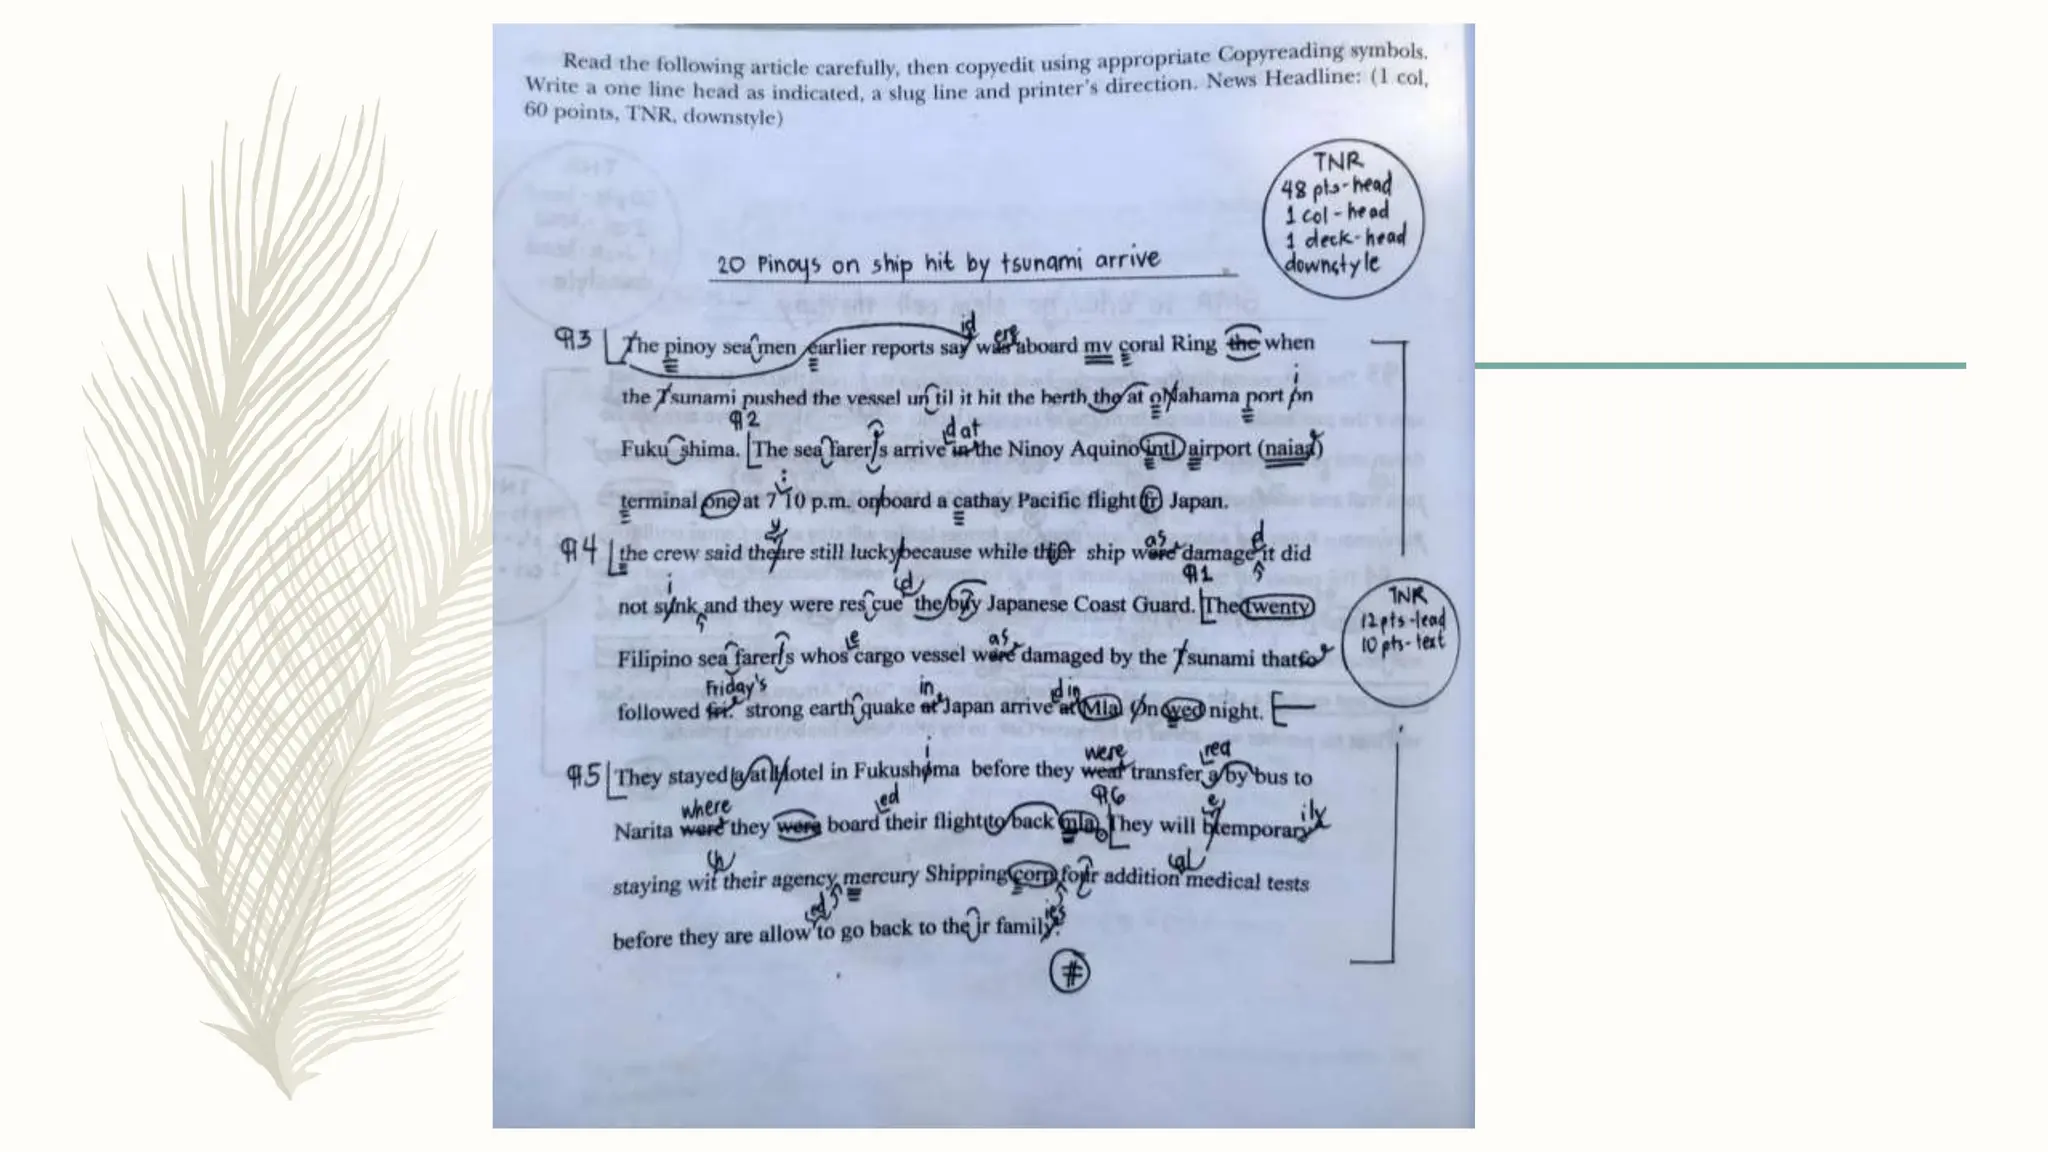 Read the following article carefully, then copyedit using appropriate Copyreading symbols.
Write a one line head as indicated, a slug line and printer's direction. News Headline: (1 col,
60 points, TNR, downstyle)
TNR
48 pts-head
1 col-head
1 deck-head
downstyle
20 Pinoys on ship hit by tsunami arrive
id ere
¶3 The pinoy sea men earlier reports say was aboard mv coral Ring the when
i
the Tsunami pushed the vessel un til it hit the berth the at oNahama port on
¶2 d at
Fuku shima. The sea farer s arrive in the Ninoy Aquino intl airport (naiaa)
:
terminal one at 7 10 p.m. onboard a cathay Pacific flight fr Japan.
y as d
¶4 the crew said the are still lucky because while their ship were damage it did
i d ¶1
not synk and they were res cue the by Japanese Coast Guard. The twenty
e as
Filipino sea farer s whos cargo vessel were damaged by the Tsunami that
Friday's in d in
followed fri. strong earth quake at Japan arrive at Mla On wed night.
TNR
12 pts-lead
10 pts-text
i were red
¶5 They stayed a at Hotel in Fukushoma before they wear transfer a by bus to
where ed ¶6 e ily
Narita were they were board their flight to back mla. They will b temporary
h al
staying wit their agency mercury Shipping corp for addition medical tests
ed ies
before they are allow to go back to the ir family.
#